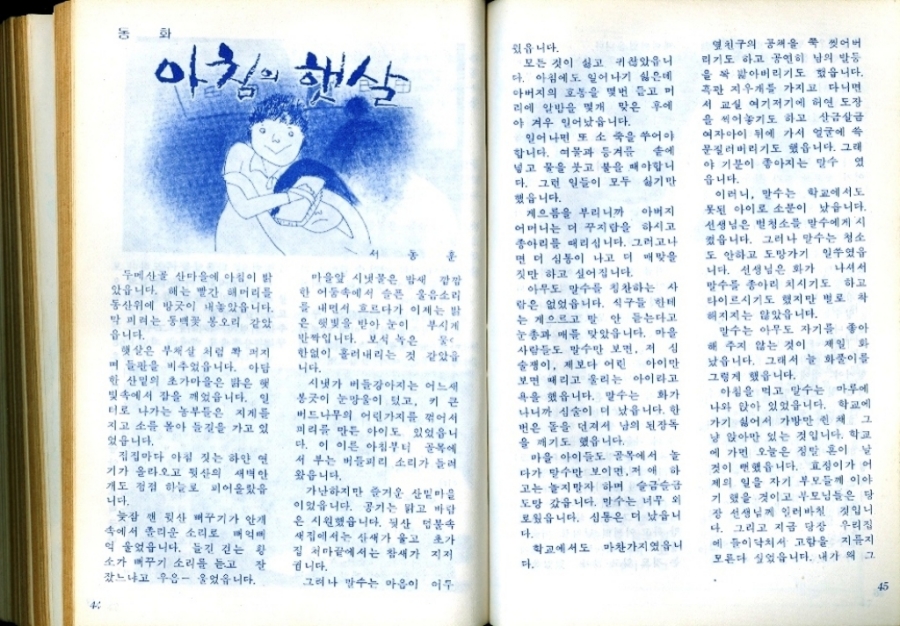 동 화
아침의 햇살
서 동 훈
두메산골 산마을에 아침이 밝
았읍니다. 해는 빨간 해머리를
동산위에 방긋이 내놓았읍니다.
막 피려는 동백꽃 봉오리 같았
읍니다.
햇살은 부채살 처럼 쫙 퍼지
며 들판을 비추었읍니다. 아담
한 산밑의 초가마을은 맑은 햇
빛속에서 잠을 깨었읍니다. 일
터로 나가는 농부들은 지게를
지고 소를 몰아 들길을 가고 있
었읍니다.
집집마다 아침 짓는 하얀 연
기가 올라오고 뒷산의 새벽안
개도 점점 하늘로 피어올랐읍
니다.
늦잠 깬 뒷산 뻐꾸기가 안개
속에서 졸리운 소리로 뻐꺽뻐
꺽 울었읍니다. 들길 걷는 황
소가 뻐꾸기 소리를 듣고 잘
잤느냐고 우음— 울었읍니다.
마을앞 시냇물은 밤새 깜깜
한 어둠속에서 슬픈 울음소리
를 내면서 흐르다가 이제는 밝
은 햇빛을 받아 눈이 부시게
반짝입니다. 보석 녹은
한없이 흘러내리는 것 같았읍
니다.
시냇가 버들강아지는 어느새
봉긋이 눈망울이 텄고, 키 큰
버드나무의 어린가지를 꺾어서
피리를 만든 아이도 있었읍니
다. 이 이른 아침부터 골목에
서 부는 버들피리 소리가 들려
왔읍니다.
가난하지만 즐거운 산밑마을
이었읍니다. 공기는 맑고 바람
은 시원했읍니다. 뒷산 덤불속
새집에서는 산새가 울고 초가
집 처마끝에서는 참새가 지저
귑니다.
그러나 말수는 마음이 어두
44
웠읍니다.
모든 것이 싫고 귀찮았읍니
다. 아침에도 일어나기 싫은데
아버지의 호통을 몇번 듣고 머
리에 알밤을 몇개 맞은 후에
야 겨우 일어났읍니다.
일어나면 또 소 죽을 쑤어야
합니다. 여물과 등겨를 솥에
넣고 물을 붓고 불을 때야합니
다. 그런 일들이 모두 싫기만
했읍니다.
게으름을 부리니까 아버지
어머니는 더 꾸지람을 하시고
종아리를 때리십니다. 그러고나
면 더 심통이 나고 더 매맞을
짓만 하고 싶어집니다.
아무도 말수를 칭찬하는 사
람은 없었읍니다. 식구들 한테
는 게으르고 말 안 듣는다고
눈총과 매를 맞았읍니다. 마을
사람들도 말수만 보면, 저 심
술쟁이, 제보다 어린 아이만
보면 때리고 울리는 아이라고
욕을 했읍니다. 말수는 화가
나니까 심술이 더 났읍니다. 한
번은 돌을 던져서 남의 된장독
을 깨기도 했읍니다.
마을 아이들도 골목에서 놀
다가 말수만 보이면, 저 애 하
고는 놀지말자 하며 슬금슬금
도망 갔읍니다. 말수는 너무 외
로웠읍니다. 심통은 더 났읍니
다.
학교에서도 마찬가지였읍니
다.
옆친구의 공책을 쭉 찢어버
리기도 하고 공연히 남의 발등
을 꽉 밟아버리기도 했읍니다.
흑판 지우개를 가지고 다니면
서 교실 여기저기에 허연 도장
을 찍어놓기도 하고 살금살금
여자아이 뒤에 가서 얼굴에 쓱
문질러버리기도 했읍니다. 그래
야 기분이 좋아지는 말수 였
읍니다.
이러니, 말수는 학교에서도
못된 아이로 소문이 났읍니다.
선생님은 벌청소를 말수에게 시
켰읍니다. 그러나 말수는 청소
도 안하고 도망가기 일쑤였읍
니다. 선생님은 화가 나셔서
말수를 종아리 치시기도 하고
타이르시기도 했지만 별로 착
해지지는 않았읍니다.
말수는 아무도 자기를 좋아
해 주지 않는 것이 제일 화
났읍니다. 그래서 늘 화풀이를
그렇게 했읍니다.
아침을 먹고 말수는 마루에
나와 앉아 있었읍니다. 학교에
가기 싫어서 가방만 든 채 그
냥 앉아만 있는 것입니다. 학교
에 가면 오늘은 정말 혼이 날
것이 뻔했읍니다. 효정이가 어
제의 일을 자기 부모들께 이야
기 했을 것이고 부모님들은 당
장 선생님께 일러바쳤 것입니
다. 그리고 지금 당장 우리집
에 들이닥쳐서 고함을 지를지
모른다 싶었읍니다. 내가 왜 그
45